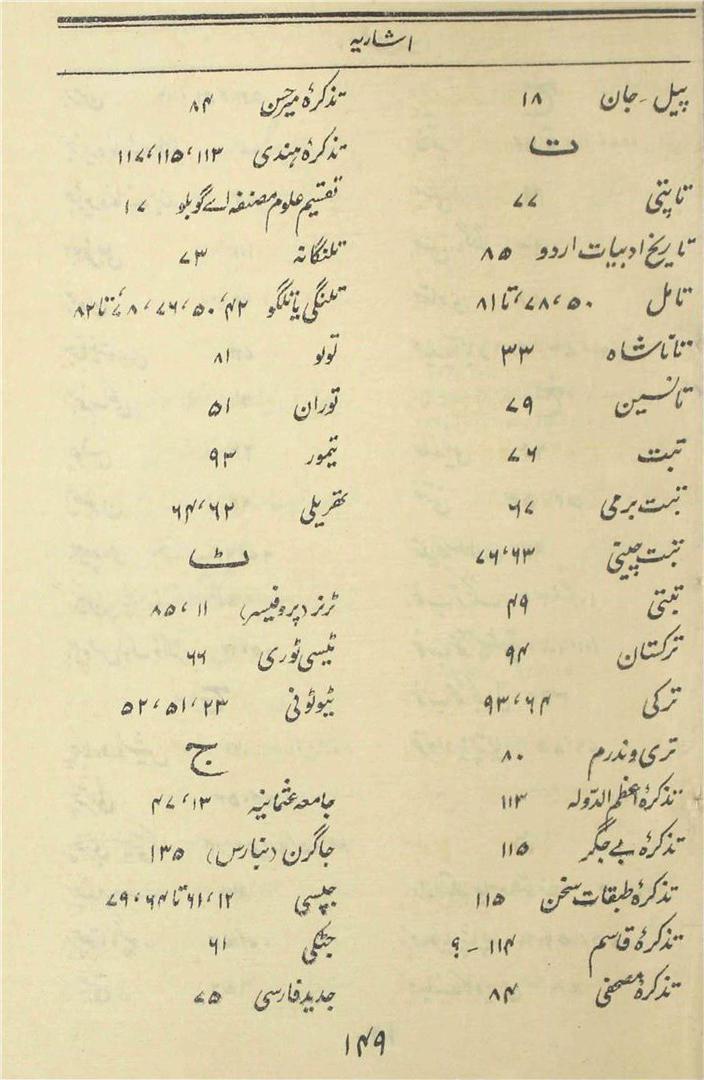 اشاریہ
پیل۔ جان ۱۸
ت
تاپتی ۷۷
تاریخ ادبیات اردو ۸۵
تامل ۵۰، ۷۸، تا ۸۱
تاناشاہ ۳۳
تانسین ۷۹
تبت ۷۶
تبت برمی ۶۷
تبت چینی ۶۳، ۷۶
تبتی ۴۹
ترکستان ۹۴
ترکی ۶۴، ۹۳
تری وندرم ۸۰
تذکرۂ اعظم الدّولہ ۱۱۳
تذکرۂ بے جگر ۱۱۵
تذکرۂ طبقات سخن ۱۱۵
تذکرۂ قاسم ۱۱۴ ۔ ؟
تذکرۂ مصحفی ۸۴
تذکرۂ میر حسن ۸۴
تذکرۂ ہندی ۱۱۳، ۱۱۵، ۱۱۷
تقسیم علوم مصنفہ اے گوبلو ۱۷
تلنگانہ ۷۳
تلنگی یا تلگو ۴۲، ۵۰، ۷۶، ۷۸، تا ۸۲
تولو ۸۱
توران ۵۱
تیمور ۹۳
تھریلی ۶۲، ۶۴
ٹ
ٹرنر (پروفیسر) ۱۱، ۸۵
ٹیسی ٹوری ۶۶
ٹیوٹونی ۲۳، ۵۱، ۵۲
ج
جامعہ عثمانیہ ۱۳، ۴۷
جاگرن (بنارس) ۱۳۵
جپسی ۱۲، ۶۱ تا ۶۴، ۷۹
جٹکی ۶۱
جدید فارسی ۷۵
۱۴۹